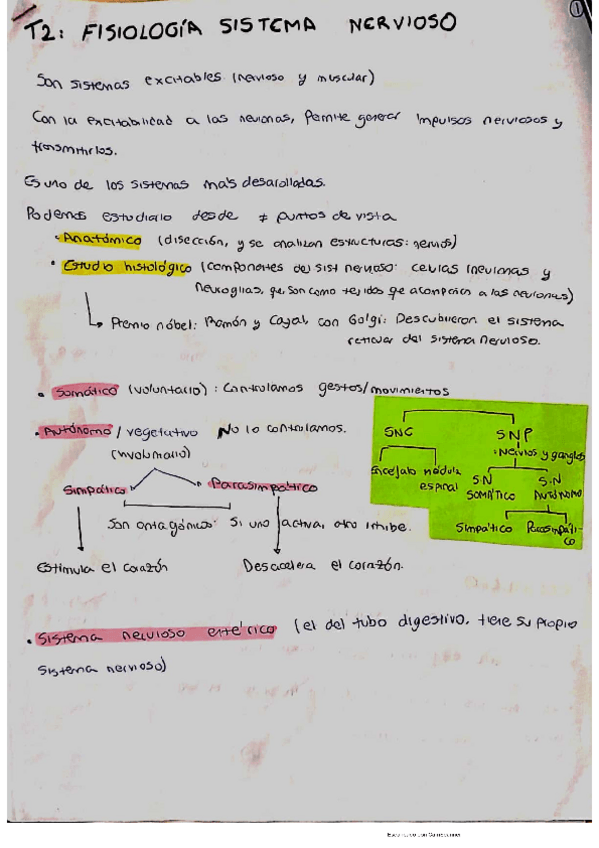 ①
T2: FISIOLOGÍA SISTEMA NERVIOSO
Son sistemas excitables (nervioso y muscular)
Con la excitabilidad a las neuronas, permite generar impulsos nerviosos y
transmitirlos.
Es uno de los sistemas más desarollados.
Podemos estudiarlo desde ≠ puntos de vista
· Anatómico (disección, y se analizan estructuras: nervios)
· Estudio histológico (componentes del sist nervioso: células (neuronas y
neuroglias, que son como tejidos que acompañan a las neuronas)
↳ Premio nóbel: Ramón y Cajal, con Golgi: Descubrieron el sistema
reticular del sistema nervioso.
· Somático (voluntario): Controlamos gestos/movimientos
· Autónomo / vegetativo No lo controlamos.
(involuntario)
Simpático Parasimpático
Son antagónicos: Si uno activa, otro inhibe.
Estimula el corazón Desacelera el corazón.
SNC SNP
· Nervios y ganglios
Encéfalo médula
espinal
SN
SOMÁTICO
S.N
AUTÓNOMO
Simpático Parasimpáti-
co
· Sistema nervioso entérico (el del tubo digestivo, tiene su propio
sistema nervioso)
Escaneado con CamScanner